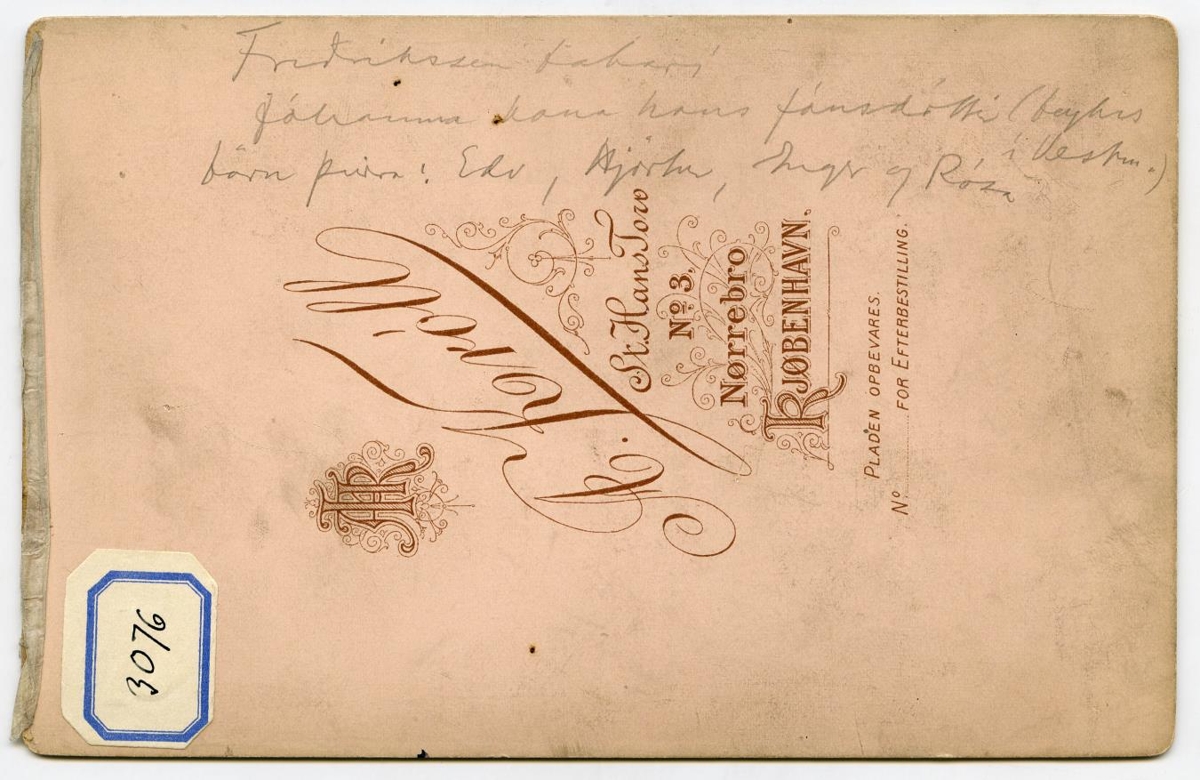 Fridriksen bakari
Jóhanna kona hans Jónsdóttir (
í Vestm.)
börn þeirra: Edv, Hjörtur, Inger og Rósa
St. Hans Torv
No 3,
Nørrebro
KJØBENHAVN.
PLADEN OPBEVARES.
No FOR EFTERBESTILLING.
HR
3076